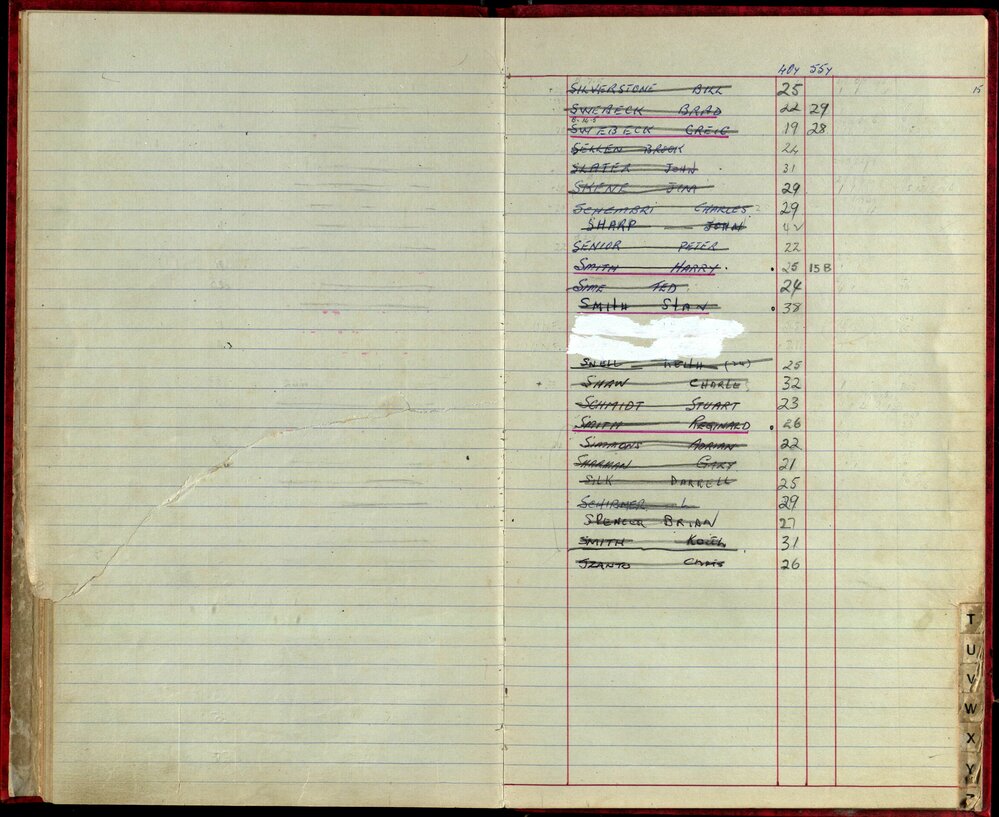 40y 55y
15
SILVERSTONE BILL 25
SWEBECK BRAD 22 29
SWEBECK GREIG 19 28
SELLEN BROCK 24
SLATER JOHN 31
SKENE JIM 29
SCHEMBRI CHARLES 29
SHARP JOHN 42
SENIOR PETER 22
SMITH HARRY. 25 15B
SIME TED 24
SMITH STAN 38
SNELL KEITH (24) 25
SHAW CHARLE 32
SCHMIDT STUART 23
SMITH REGINARD 26
SIMMONS ADRIAN 22
SHARMAN GARY 21
SILK DARRELL 25
SCHIRMER L 29
SPENCER BRIAN 27
SMITH 31
SZANTO CHRIS 26
T
U
V
W
X
Y
Z